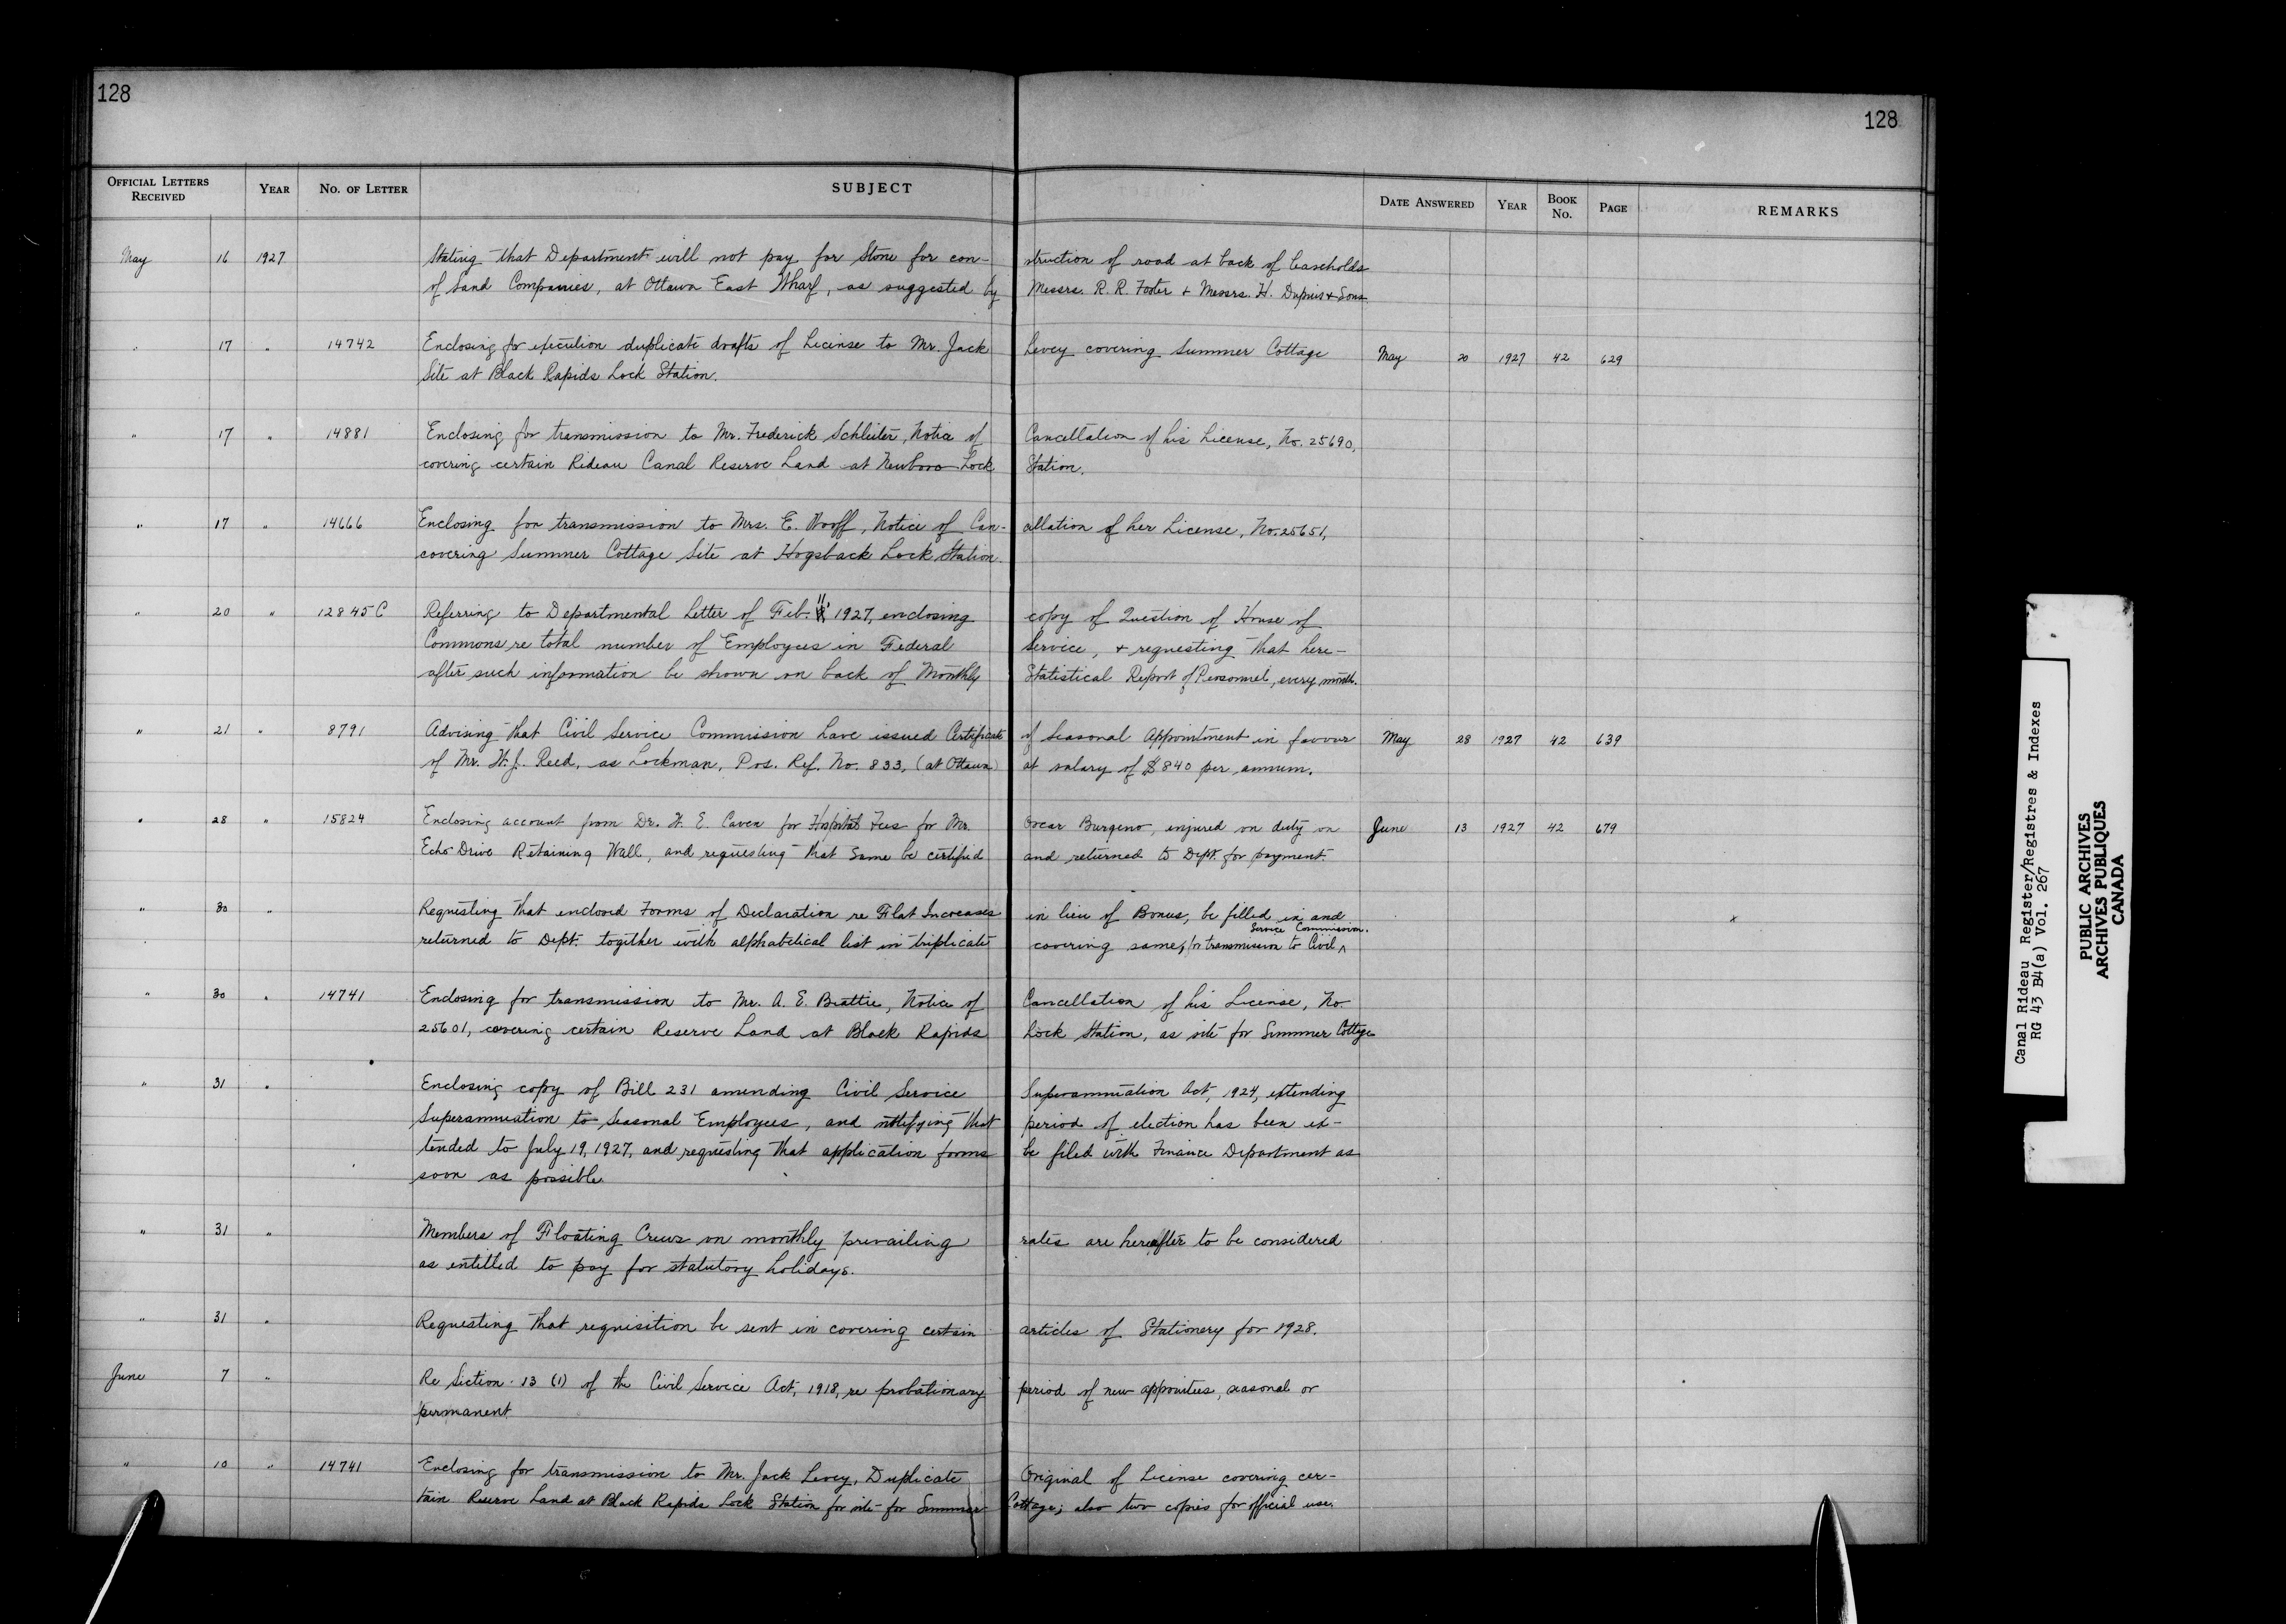 128
128
OFFICIAL LETTERS RECEIVED YEAR NO. OF LETTER SUBJECT DATE ANSWERED YEAR BOOK No. PAGE REMARKS
May 16 1927 Stating that Department will not pay for Stone for con- struction of road at back of leaseholds
of Sand Companies, at Ottawa East Wharf, as suggested by Messrs. R. R. Foster + Messrs. H. Dupuis + Sons.
" 17 " 14742 Enclosing for execution duplicate drafts of License to Mr. Jack Levey covering Summer Cottage May 20 1927 42 629
Site at Black Rapids Lock Station.
" 17 " 14881 Enclosing for transmission to Mr. Frederick Schleiter, Notice of Cancellation of his License, No. 25690,
covering certain Rideau Canal Reserve Land at Newboro Lock Station.
" 17 " 14666 Enclosing for transmission to Mrs. E. Wooff, Notice of Can- cellation of her License, No. 25651,
covering Summer Cottage Site at Hogsback Lock Station.
" 20 " 12845 C Referring to Departmental Letter of Feb. 11 1927, enclosing copy of Question of House of
Commons re total number of Employees in Federal Service, + requesting that here-
after such information be shown on back of Monthly Statistical Report of Personnel, every month.
" 21 " 8791 Advising that Civil Service Commission have issued Certificate of Seasonal Appointment in favour May 28 1927 42 639
of Mr. W. J. Reed, as Lockman, Pos. Ref. No. 833, (at Ottawa) at salary of $840 per annum.
" 28 " 15824 Enclosing account from Dr. W. E. Caven for Hospital Fees for Mr. Oscar Burgeno, injured on duty on June 13 1927 42 679
Echo Drive Retaining Wall, and requesting that same be certified and returned to Dept. for payment.
" 30 " Requesting that enclosed Forms of Declaration re Flat Increases in lieu of Bonus, be filled in and
returned to Dept. together with alphabetical list in triplicate covering same, for transmission to Civil Service Commission.
" 30 " 14741 Enclosing for transmission to Mr. A. E. Beattie, Notice of Cancellation of his License, No.
25601, covering certain Reserve Land at Black Rapids Lock Station, as site for Summer Cottage
" 31 " Enclosing copy of Bill 231 amending Civil Service Superannuation Act, 1924, extending
Superannuation to Seasonal Employees, and notifying that period of election has been ex-
tended to July 19, 1927, and requesting that application forms be filed with Finance Department as
soon as possible.
" 31 " Members of Floating Crews on monthly prevailing rates are hereafter to be considered
as entitled to pay for statutory holidays.
" 31 " Requesting that requisition be sent in covering certain articles of Stationery for 1928.
June 7 " Re Section 13 (1) of the Civil Service Act, 1918, re probationary period of new appointees, seasonal or
permanent
" 10 " 14741 Enclosing for transmission to Mr. Jack Levey, Duplicate Original of License covering cer-
tain Reserve Land at Black Rapids Lock Station for site for Summer Cottage; also two copies for official use.
Canal Rideau Register/Registres & Indexes
RG 43 B4(a) Vol. 267
PUBLIC ARCHIVES
ARCHIVES PUBLIQUES
CANADA